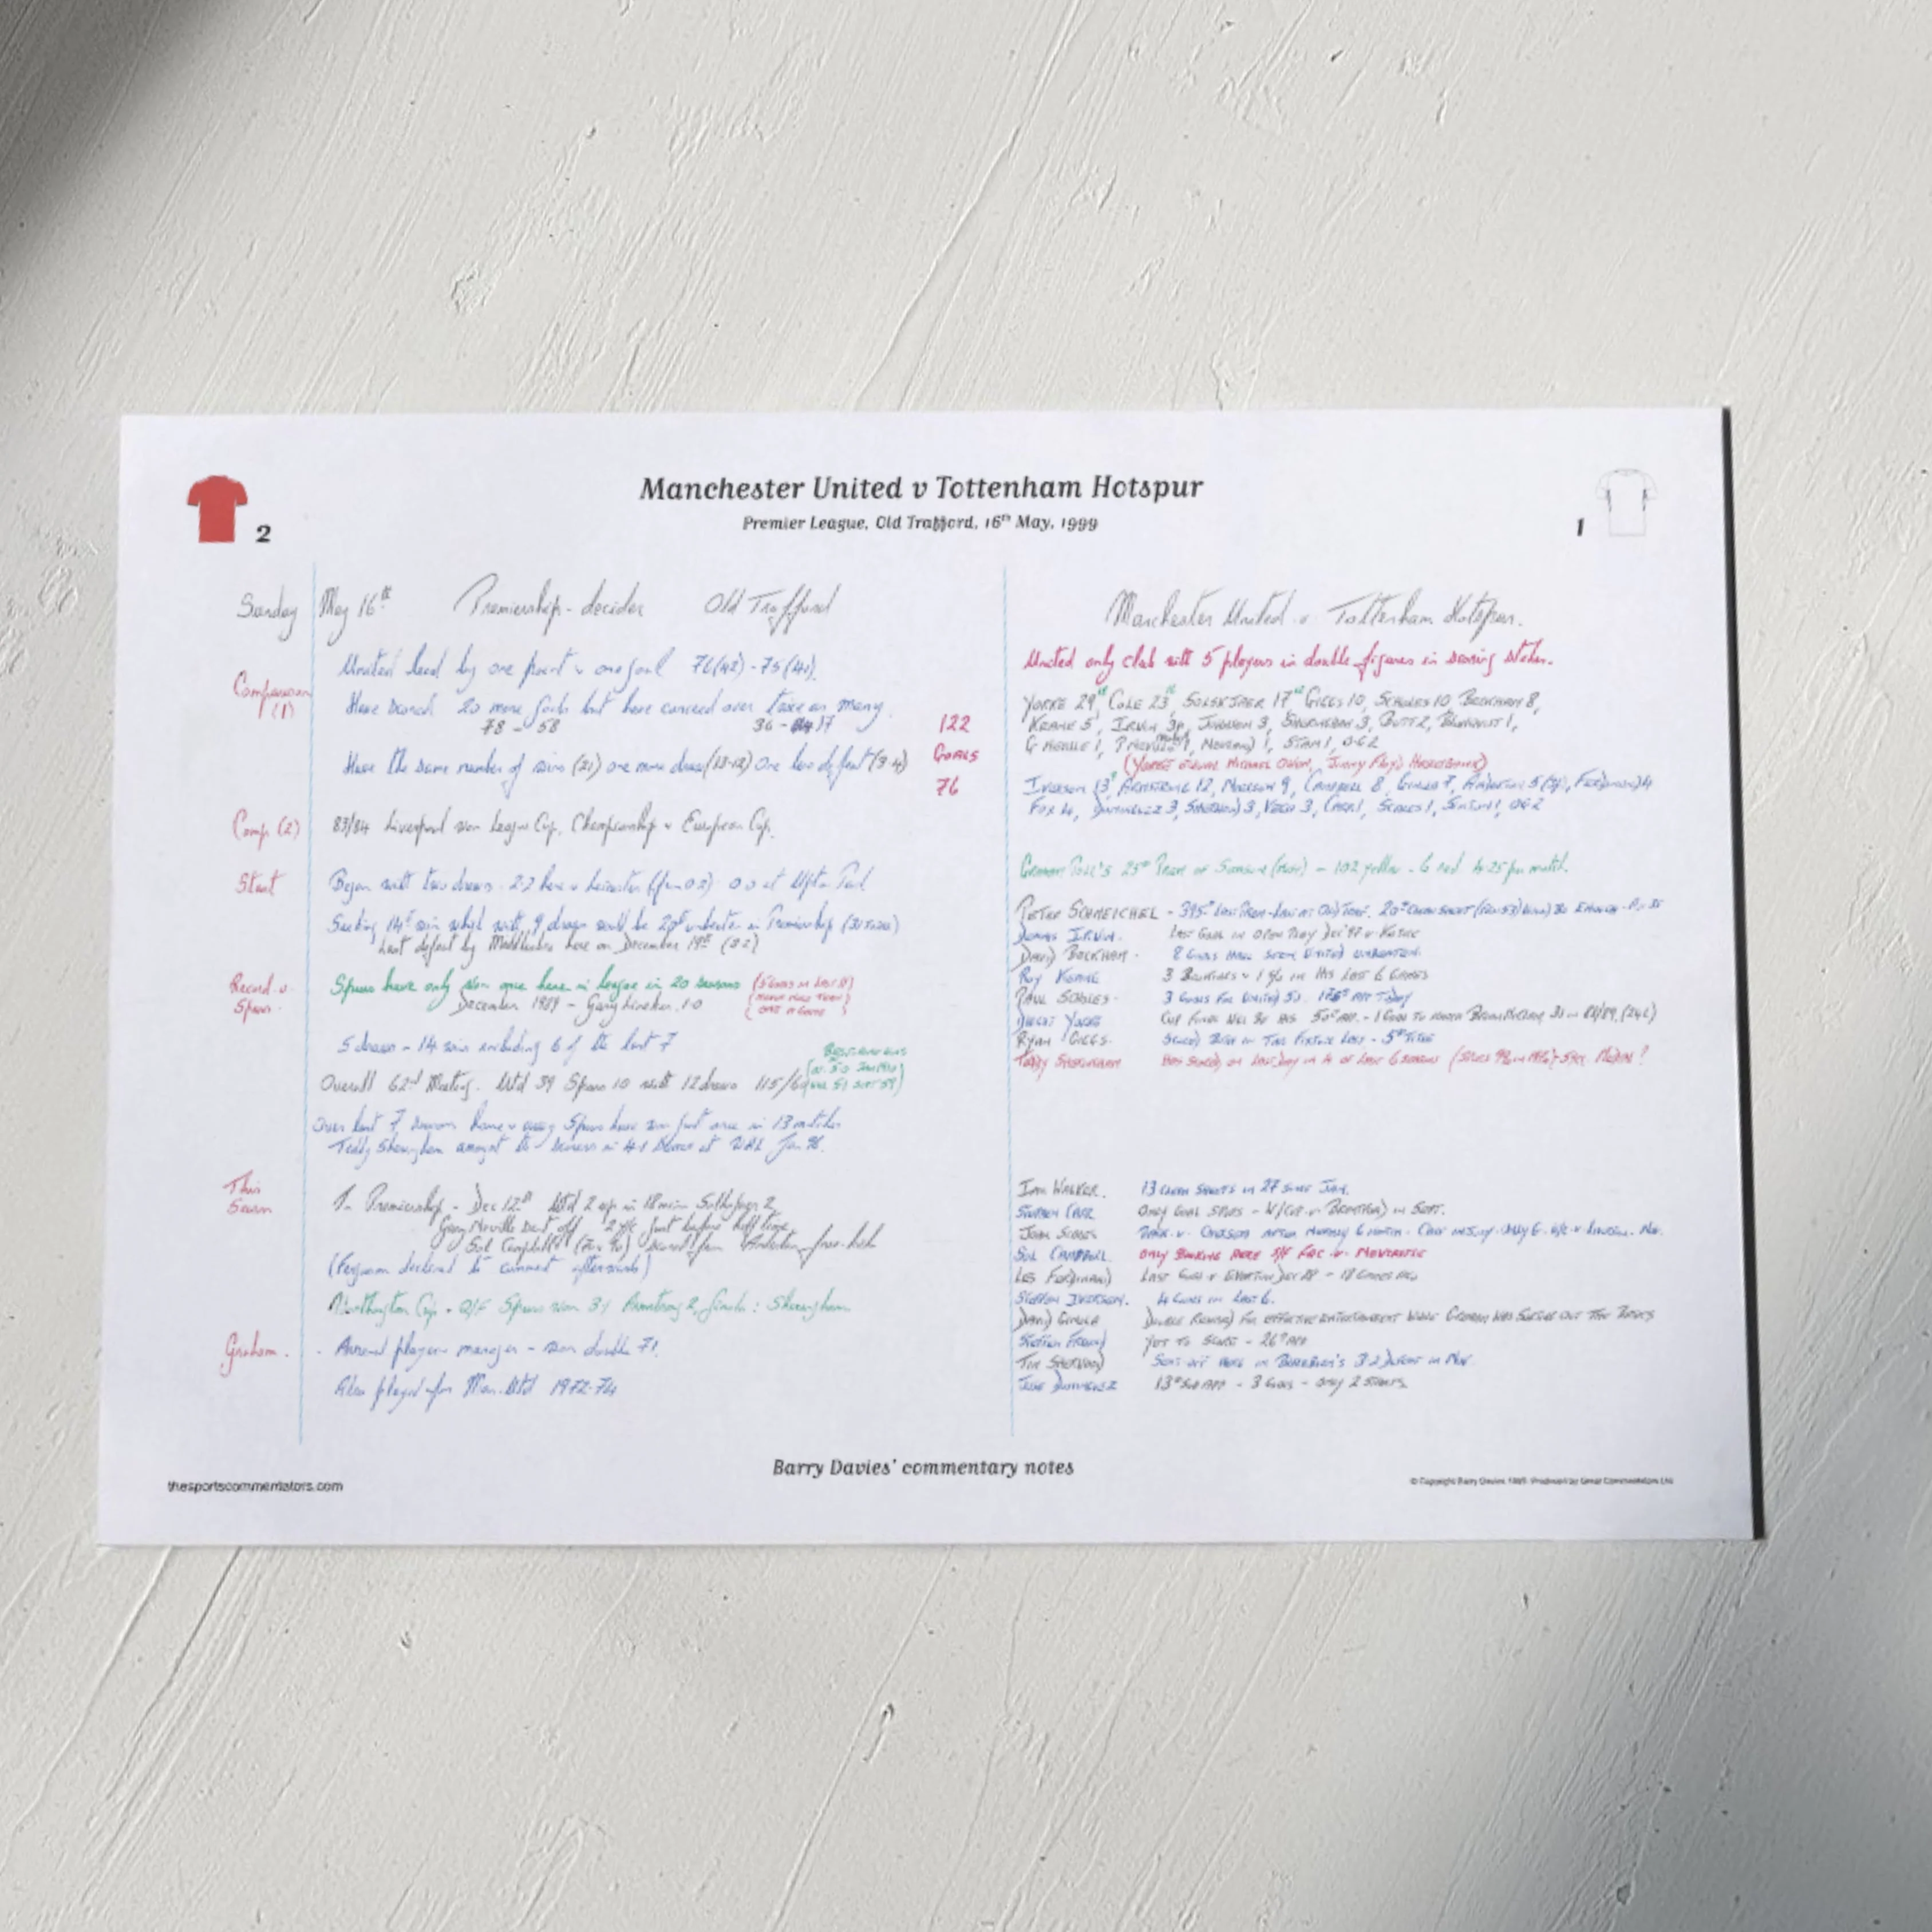 Manchester United v Tottenham Hotspur
Premier League, Old Trafford, 16th May, 1999
2
1
Sunday May 16th Premiership - decider Old Trafford
Comparison (1)
United lead by one point & one goal 76(42) - 75(41).
Have scored 20 more goals but have conceded over twice as many.
78 - 58 36 - 17
Have the same number of wins (21) one more draw (13-12) one less defeat (3-4)
122
GOALS
76
Comp (2) 83/84 Liverpool won League Cup, Championship & European Cup.
Start Began with two draws - 2.2 here v Leicester 0 0 at Upton Park
Seeking 14th win which with 9 draws would be 20th unbeaten in Premiership
Last defeat by Middlesbro here on December 19th
Record v Spurs.
Spurs have only won once here in league in 20 seasons
December 1989 - Gary Lineker 1-0
5 draws - 14 wins including 6 of the last 7
Overall 62nd Meeting. Utd 39 Spurs 10 with 12 draws
Over last 7 seasons home & away Spurs have won just once in 13 matches
Teddy Sheringham amongst the scorers in 4-1 at WHL Jan 96.
This Season
In Premiership - Dec 12th Utd 2 up in 18 mins Solskjaer 2
Gary Neville sent off 2 y/c just before half time
Sol Campbell scored from Anderton free-kick
(Ferguson declined to comment afterwards)
Worthington Cup - Q/F Spurs won 3-1 Armstrong 2, Ginola : Sheringham
Graham. - Arsenal player & manager - won double 71.
Also played for Man. Utd 1972-74
Manchester United v Tottenham Hotspur.
United only club with 5 players in double figures in scoring stakes.
YORKE 29 COLE 23, SOLSKJAER 17 GIGGS 10, SCHOLES 10 BECKHAM 8,
KEANE 5, IRWIN 3p, JOHNSEN 3, SHERINGHAM 3, BUTT 2, BLOMQVIST 1,
G NEVILLE 1, P NEVILLE 1, 1, STAM 1, OG 2
(YORKE MICHAEL OWEN, JIMMY FLOYD HASSELBAINK)
IVERSEN 13, ARMSTRONG 12, NIELSEN 9, CAMPBELL 8, GINOLA 7, ANDERTON 5, FERDINAND 4
FOX 4, DOMINGUEZ 3, SHERWOOD 3, VEGA 3, CARR 1, SCALES 1, SINTON 1, OG 2
GRAHAM POLL'S 25th PREM OF SEASON - 102 yellow - 6 red 4.25 per match.
PETER SCHMEICHEL - 395th
DENIS IRWIN. LAST GOAL IN OPEN PLAY DEC 97
DAVID BECKHAM - 8 GOALS HAVE SEEN UNITED UNBEATEN.
ROY KEANE 3 BOOKINGS & 1 IN HIS LAST 6 GAMES
PAUL SCHOLES - 3 GOALS FOR APP TODAY
DWIGHT YORKE CUP FINAL WILL BE HIS 50th APP.
RYAN GIGGS - SCORED IN THIS FIXTURE LAST - 5th TITLE
TEDDY SHERINGHAM HAS SCORED ON LAST DAY IN 4 OF LAST 6 SEASONS
IAN WALKER. 13 CLEAN SHEETS IN 27 SINCE JAN.
STEPHEN CARR ONLY GOAL SPURS - W/CUP v BRENTFORD IN SEPT.
JOHN SCALES
SOL CAMPBELL. ONLY BOOKING HERE S/F FAC v NEWCASTLE
LES FERDINAND LAST GOAL v EVERTON DEC 28 - 18 GAMES AGO
STEFFEN IVERSEN. 4 GOALS IN LAST 6.
DAVID GINOLA
STEFFEN FREUND YET TO SCORE - 26th APP
TIM SHERWOOD SENT OFF HERE IN BLACKBURN'S 3 2 DEFEAT IN NOV.
JOSE DOMINGUEZ 13th SUB APP - 3 GOALS - ONLY 2 STARTS.
Barry Davies' commentary notes
thesportscommentators.com
© Copyright Barry Davies 1999. Produced by Great Commentators Ltd